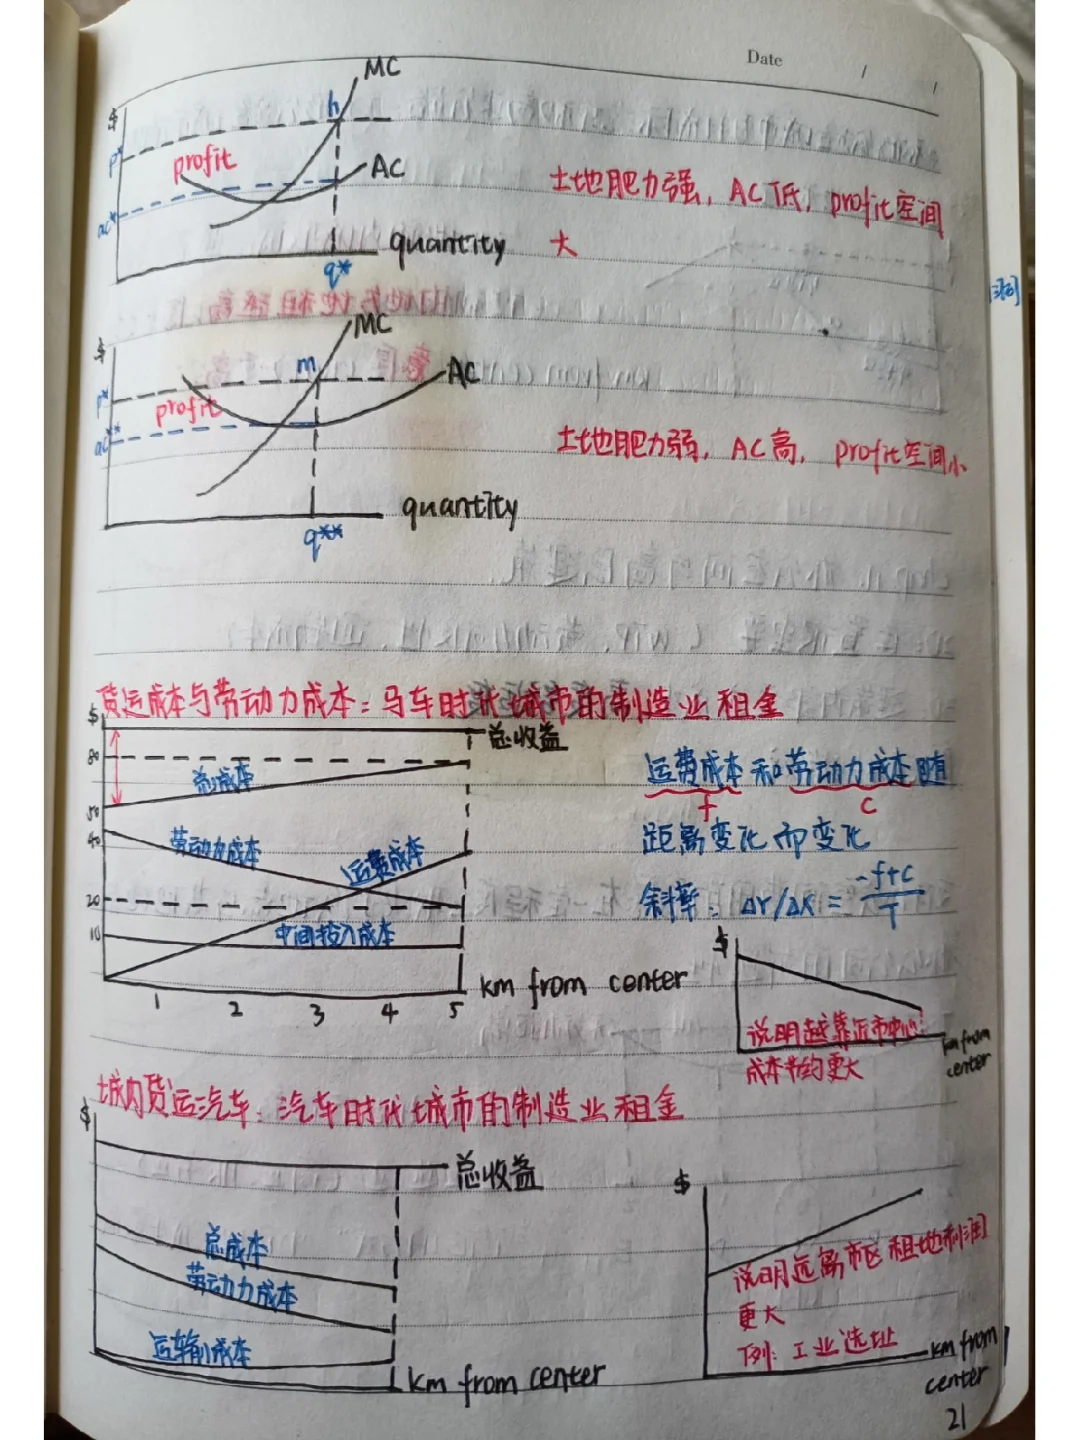 Date / /
$
MC
h
p*
profit
AC
ac*
quantity
q*
土地肥力强，AC低，profit空间
大
$
MC
m
AC
p*
profit
ac**
quantity
q**
土地肥力弱，AC高，profit空间小
货运成本与劳动力成本：马车时代城市的制造业租金
$
总收益
80
总成本
50
40
劳动力成本
运费成本
20
10
中间投入成本
1 2 3 4 5
km from center
运费成本和劳动力成本随
f c
距离变化而变化
斜率：Δr/Δx = (-f+c)/T
$
说明越靠近市中心
成本节约更大
km from
center
城内货运汽车：汽车时代城市的制造业租金
$
总收益
总成本
劳动力成本
运输成本
km from center
$
说明远离市区租地利润
更大
例：工业选址
km from
center
21